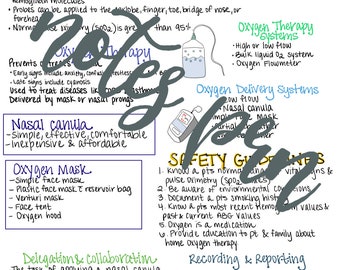 hemoglobin molecules
• Probes can be applied to the earlobe, finger, toe, bridge of nose, or
forehead
• Normal (SpO2) is greater than 95%
Oxygen Therapy
Oxygen Therapy
Systems
• High or low flow
• Bulk liquid O2 system
• Oxygen flowmeter
Prevents or
• Early signs include anxiety, conf
• Late signs include cyanosis
Used to treat diseases like
Delivered by mask or nasal prongs
Oxygen Delivery Systems
low flow
Nasal canula
Simple face mask
Nasal canula
- Simple, effective, comfortable
- inexpensive & affordable
Oxygen Mask
- Simple face mask
- Plastic face mask c reservoir bag
- Venturi mask
- Face tent
- Oxygen hood
SAFETY GUIDELINES
1. Know a pts normal vital signs &
pulse oximetry (SpO2)
2. Be aware of environmental conditions
3. Document a pts smoking history
4. Know a pts most recent hemoglobin values &
past & current ABG values
5. Oxygen is a medication
6. Provide education to pt & family about
home oxygen therapy
Delegation & Collaboration
The task of applying a nasal canula
Recording & Reporting
not as